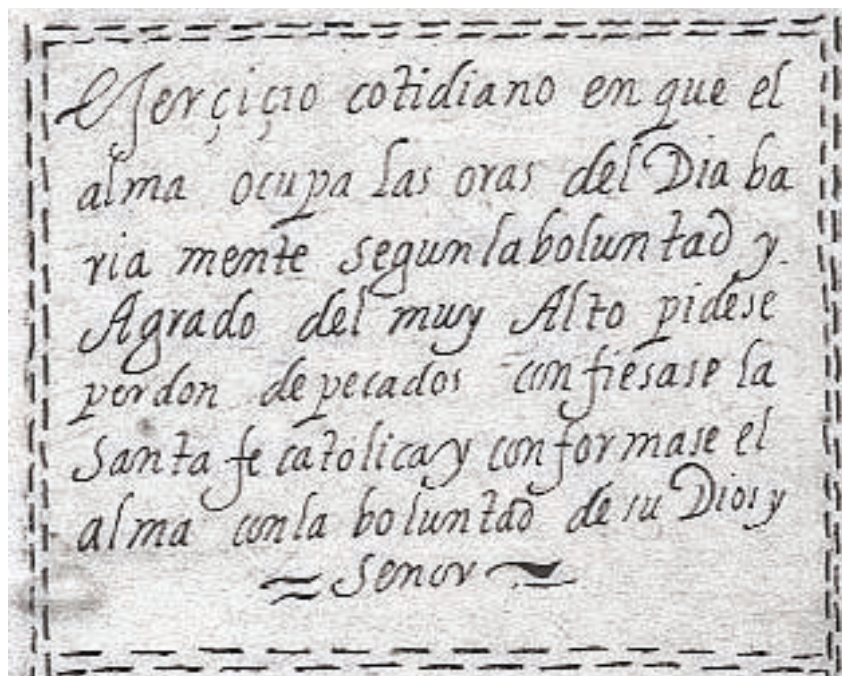 Ejerçiçio cotidiano en que el
alma ocupa las oras del Dia ba
ria mente segun la boluntad y
Agrado del muy Alto pidese
perdon de pecados confiesase la
Santa fe catolica y conformase el
alma con la boluntad de su Dios y
Senor